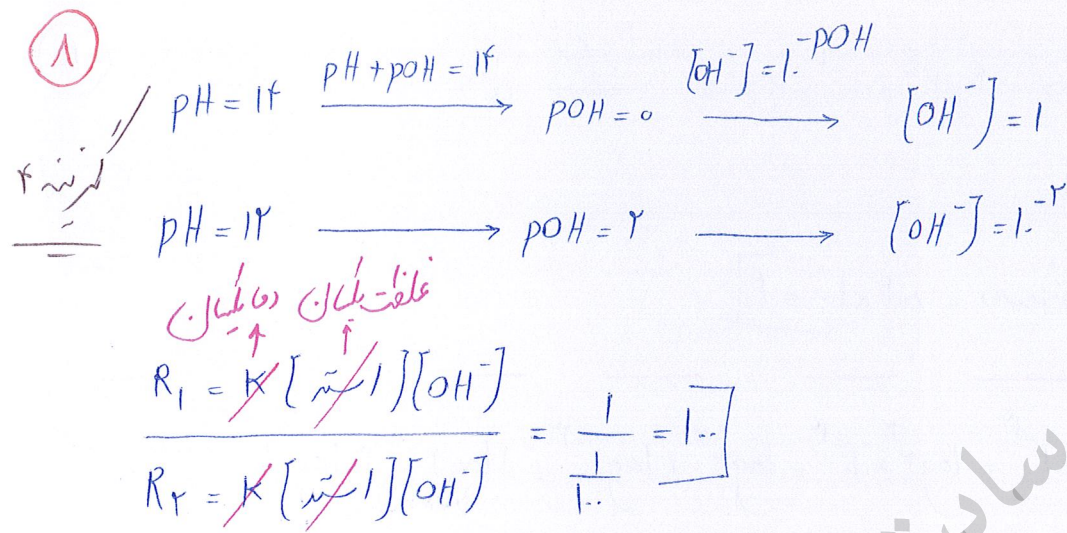 ۸
گزینه ۴
pH = ۱۴ pH + pOH = ۱۴ → pOH = ۰ [OH⁻] = ۱۰^-pOH → [OH⁻] = ۱
pH = ۱۲ → pOH = ۲ → [OH⁻] = ۱۰^-۲
دما یکسان غلظت یکسان
R₁ = K [استر][OH⁻]
R₂ = K [استر][OH⁻]
= ۱ / (۱/۱۰۰) = ۱۰۰